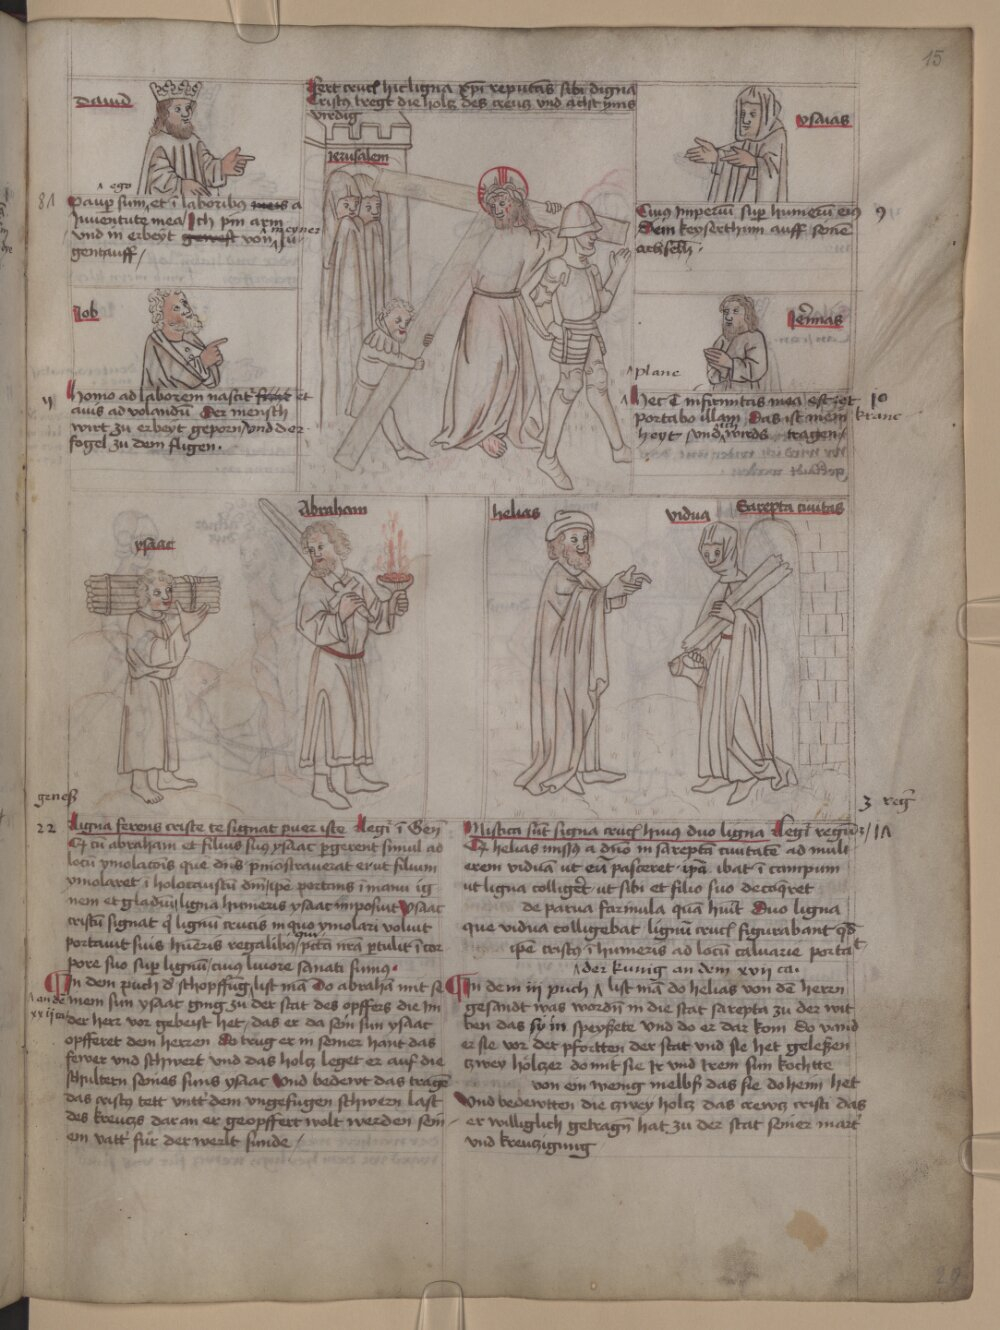 15
Fert cruc͛ hic ligna xp̄i reputans sibi digna
Cristꝰ tregt die holtz des creutz vnd achst yms
virdig
dauid
ysaias
Jerusalem
ego
81
Paup sum et ī laboribꝰ meis a
Juuentute mea Ich pin arm
vnd in erbeyt von meyner Ju
gent auff /
Cuiꝰ Imperiū sup humerū eiꝰ
9
Sein keyserthum auff seine
achselln .
Job
Jeremias
plane
11
homo ad laborem nascit᷑ et
auis ad volandū Der mensch
wirt zu erbeyt geporn vnd der
fogel zu dem flugen .
hec ē infirmitas mea et ego
10
portabo illam das ist mein kranc
heyt vnd ich wirds tragen /
ysaac
Abraham
helias
vidua
Sarepta ciuitas
geneß
22
3 regͫ
17
Ligna ferens criste te signat puer iste Legit᷑ ī Gen̄
Ꝙ cū abraham et filius suꝰ ysaac pergerent simul ad
locū ymolacōis que dn̄s p̄monstrauerat ei ut filium
ymolaret ī holocaustū dn̄i ipē portans ī manu ig
nem et gladiū ligna humeris ysaac imposuit ysaac
cristū signat ꝙ lignū crucis in quo ymolari voluit
portauit suis hūeris regalibꝰ qui pccā nr̄a ptulit ī cor
pore suo sup lignū cuiꝰ liuore sanati sumꝰ .
In dem puch d᷑ schopffūg list mā do abrahā mit se
an dē xxij ca
inem sun ysaac ging zu der stat des opffers die im
der herr vor geheist het / das er da sein sun ysaac
opfferet dem herren do trug er in seiner hant das
fewer vnd schwert vnd das holtz leget er auf die
schultern seines suns ysaac Vnd bedewt das tragē
das cristꝰ tett vntt᷑ dem vngefugen schwern last
des kreucz daran er geopffert wolt werden sein
em vatt᷑ für der werlt sunde /
Mistica sūt signa cruc͛ huiꝰ duo ligna Legit᷑ regū
Ꝙ helias missꝰ a dn̄o in sarepta ciuitatē ad muli
erem viduā ut eū pasceret . ipā ibat ī campum
ut ligna colligēt ut sibi et filio suo decoqret
de parua farinula quā huit Duo ligna
que vidua colligebat lignū cruc͛ figurabant qd̄
ipē cristꝰ ī humeris ad locū caluarie portat
der kunig an dem xvij ca .
In dem iij puch list mā do helias von dē herrn
gesandt was wordn̄ in die stat sarepta zu der wit
ben das sy in speyßete vnd do er dar kom do vand
er sie vor der pfortten der stat vnd sie het geleßen
czwey holczer do mit sie ir vnd irem sun kochtte
von ein wenig mellbs das sie do heim het
Vnd bedewtten die zwey holtz das crewtz cristi das
er williglich getragn̄ hat zu der stat seiner mart᷑
vnd kreuczigung